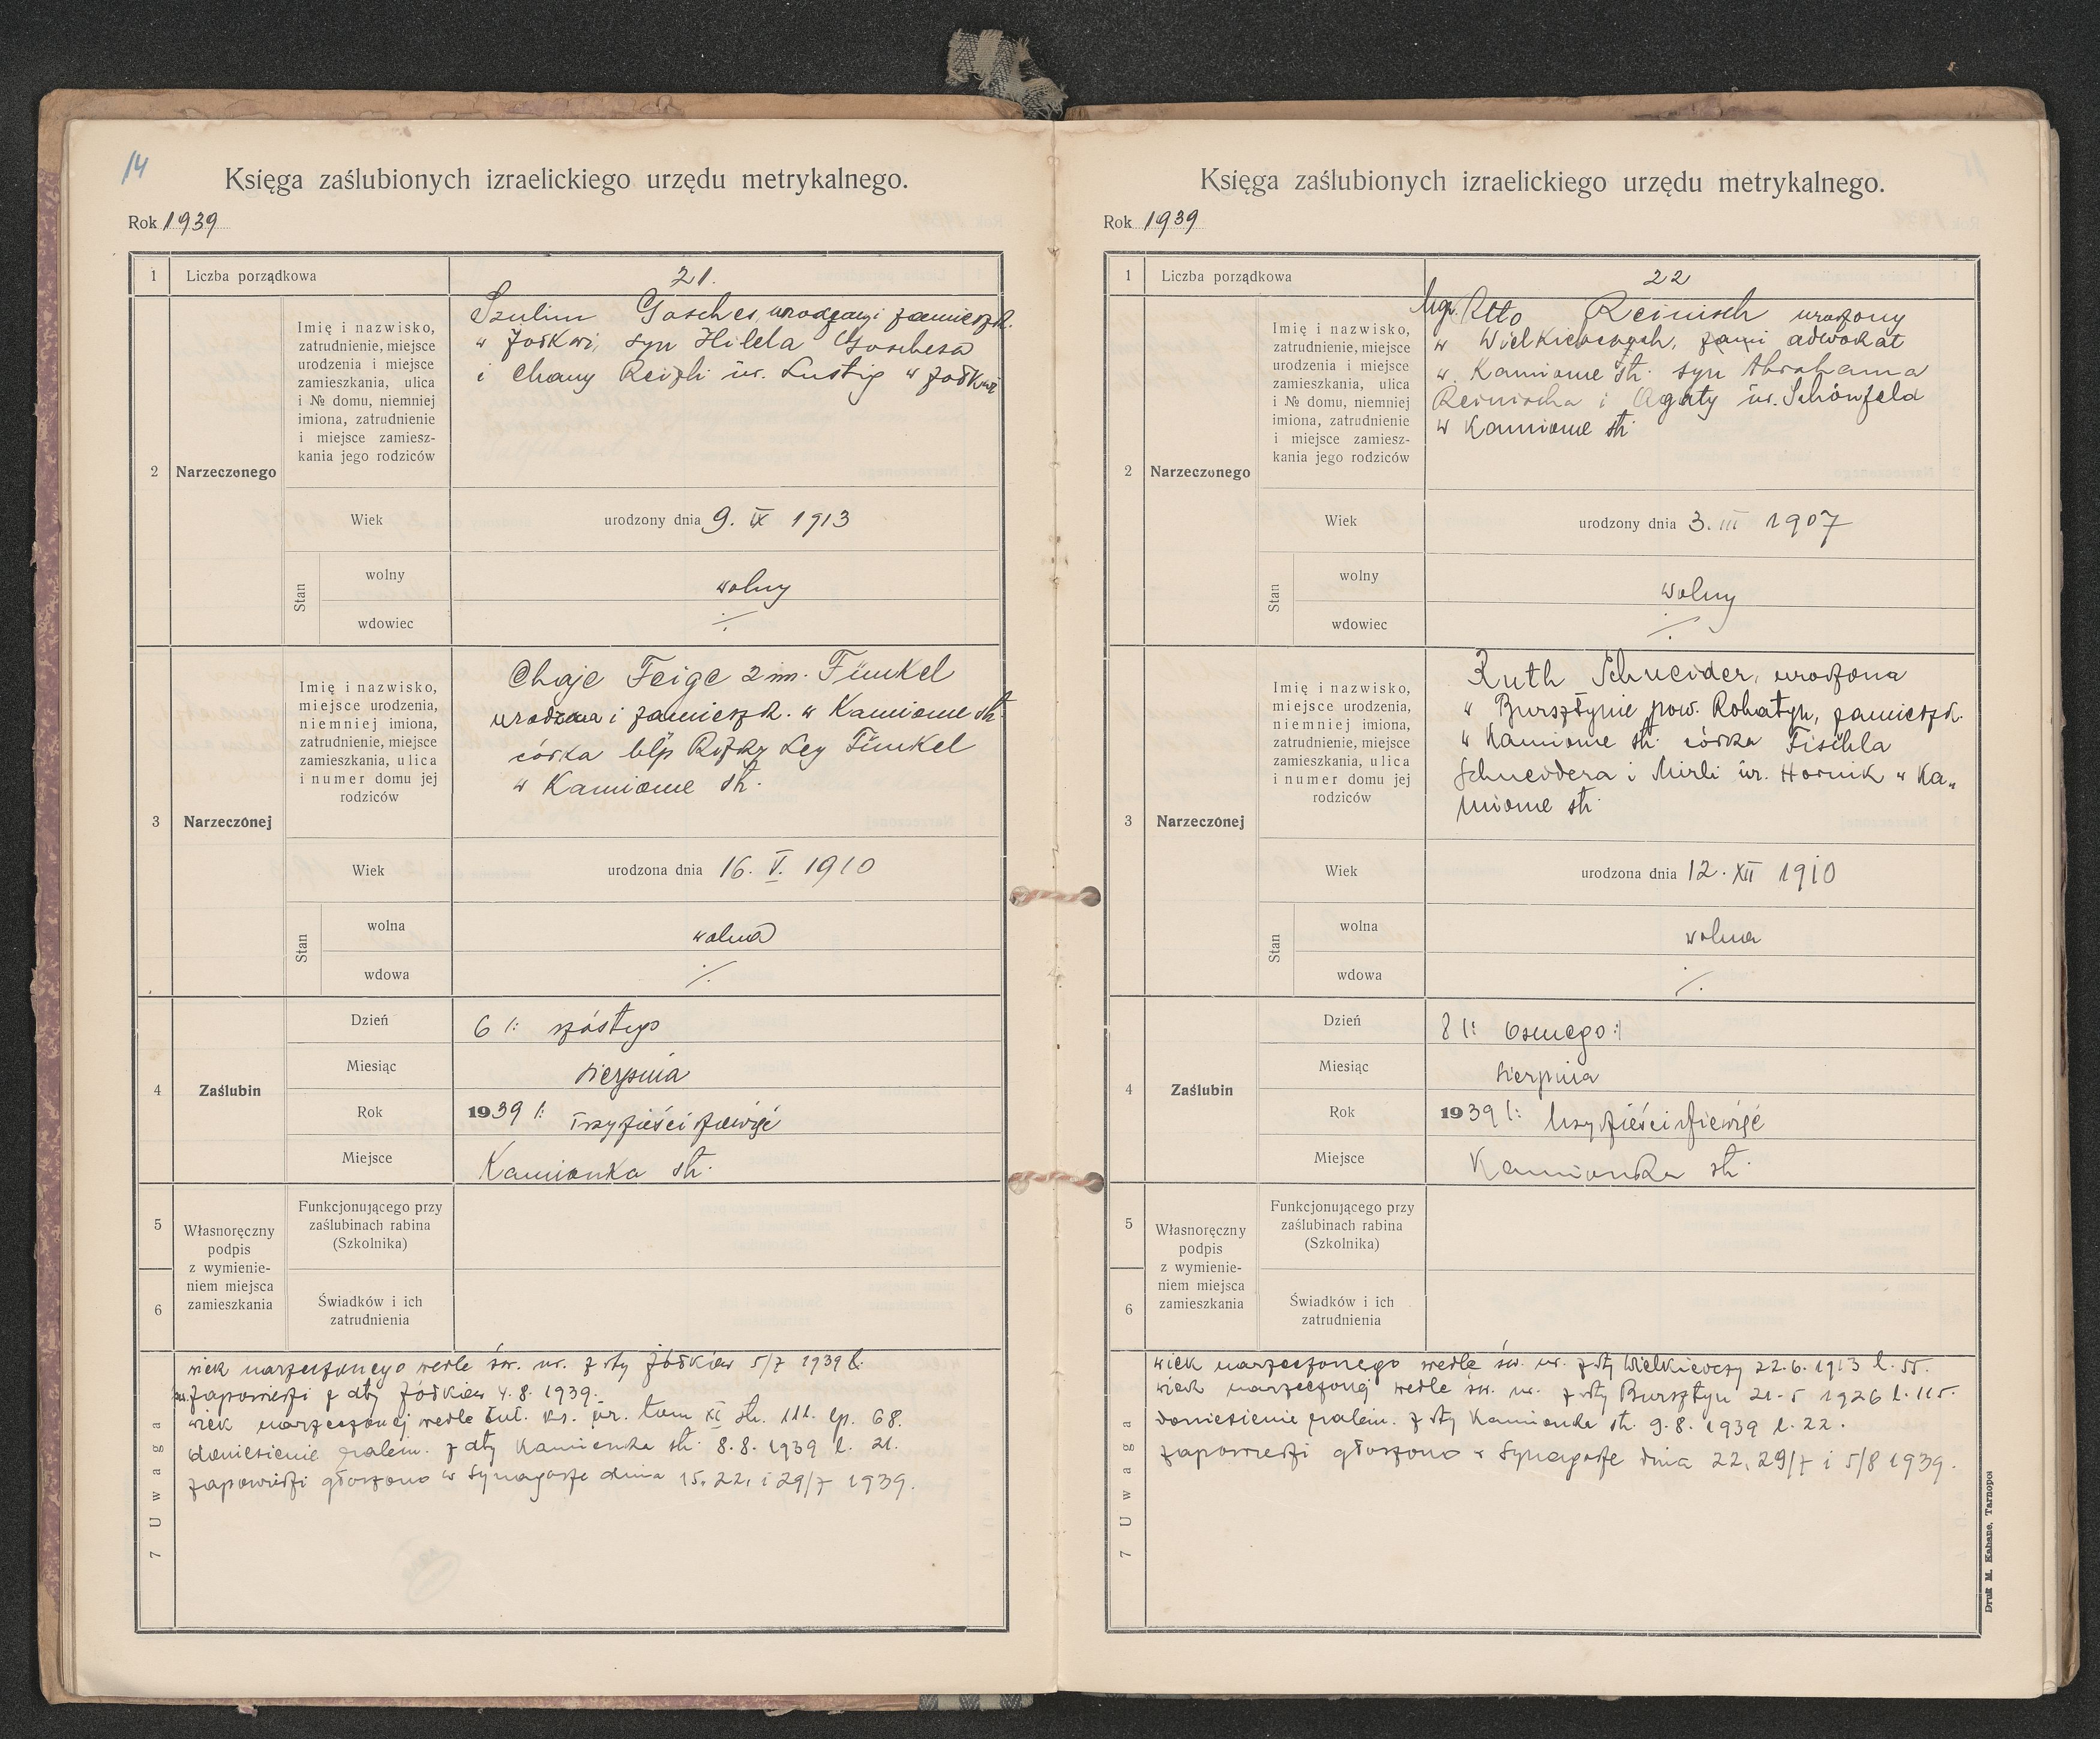 14
Księga zaślubionych izraelickiego urzędu metrykalnego.
Rok 1939
1 Liczba porządkowa 21.
2 Narzeczonego
Imię i nazwisko,
zatrudnienie, miejsce
urodzenia i miejsce
zamieszkania, ulica
i № domu, niemniej
imiona, zatrudnienie
i miejsce zamiesz-
kania jego rodziców
Szulim Gosches, urodzony i zamieszk.
w Żółkwi, syn Hilela Goschesa
i Chany Reizli ur. Lustig w Żółkwi
Wiek urodzony dnia 9. IX 1913
Stan
wolny wolny
wdowiec ./.
3 Narzeczonej
Imię i nazwisko,
miejsce urodzenia,
niemniej imiona,
zatrudnienie, miejsce
zamieszkania, ulica
i numer domu jej
rodziców
Chaje Feige 2 im. Fünkel
urodzona i zamieszk. w Kamionce str.
córka błp Ley Fünkel
w Kamionce str.
Wiek urodzona dnia 16. V. 1910
Stan
wolna wolna
wdowa ./.
4 Zaślubin
Dzień 6 /: szóstego
Miesiąc sierpnia
Rok 1939 /: trzydzieści dziewięć
Miejsce Kamionka str.
5
6
Własnoręczny
podpis
z wymienie-
niem miejsca
zamieszkania
Funkcjonującego przy
zaślubinach rabina
(Szkolnika)
Świadków i ich
zatrudnienia
7 Uwaga
wiek narzeczonego wedle św. ur. z dty Żółkiew 5/7 1939 l.
zapowiedzi z dty Żółkiew 4. 8. 1939.
wiek narzeczonej wedle tut. ks. ur. tom XI str. 111. lp. 68.
doniesienie z dty Kamionka str. 8. 8. 1939 l. 21.
zapowiedzi głoszono w Synagodze dnia 15, 22, i 29/7 1939.
Księga zaślubionych izraelickiego urzędu metrykalnego.
Rok 1939
1 Liczba porządkowa 22
2 Narzeczonego
Imię i nazwisko,
zatrudnienie, miejsce
urodzenia i miejsce
zamieszkania, ulica
i № domu, niemniej
imiona, zatrudnienie
i miejsce zamiesz-
kania jego rodziców
Mgr. Otto Reinisch urodzony
w adwokat
w Kamionce str. syn Abrahama
Reinischa i Agaty ur. Schönfeld
w Kamionce str.
Wiek urodzony dnia 3. III 1907
Stan
wolny wolny
wdowiec ./.
3 Narzeczonej
Imię i nazwisko,
miejsce urodzenia,
niemniej imiona,
zatrudnienie, miejsce
zamieszkania, ulica
i numer domu jej
rodziców
Ruth Schneider, urodzona
w Bursztynie pow. Rohatyn, zamieszk.
w Kamionce str. córka Fischla
Schneidera i Mirli ur. Hornik w Ka„
mionce str.
Wiek urodzona dnia 12. XII 1910
Stan
wolna wolna
wdowa ./.
4 Zaślubin
Dzień 8 /: ósmego :/
Miesiąc sierpnia
Rok 1939 /: trzydzieści dziewięć
Miejsce Kamionka str.
5
6
Własnoręczny
podpis
z wymienie-
niem miejsca
zamieszkania
Funkcjonującego przy
zaślubinach rabina
(Szkolnika)
Świadków i ich
zatrudnienia
7 Uwaga
wiek narzeczonego wedle św. ur. z dty 22. 6. 1913 l. 55.
wiek narzeczonej wedle św. ur. z dty Bursztyn 21. 5 1926 l. 115.
doniesienie z dty Kamionka str. 9. 8. 1939 l. 22.
zapowiedzi głoszono w Synagodze dnia 22, 29/7 i 5/8 1939.
Druk M. Kahane, Tarnopol